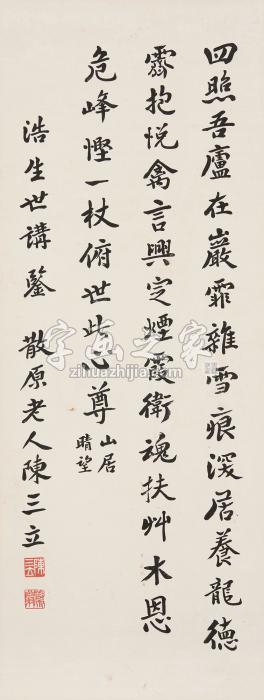 四照吾廬在巖霏雜雪痕深居養龍德
霽抱悅禽言興定煙霞衛魂扶艸木恩
危峰慳一杖俯世此心尊山居
晴望
浩生世講鑒 散原老人陳三立
字画之家
zihuazhijia.com